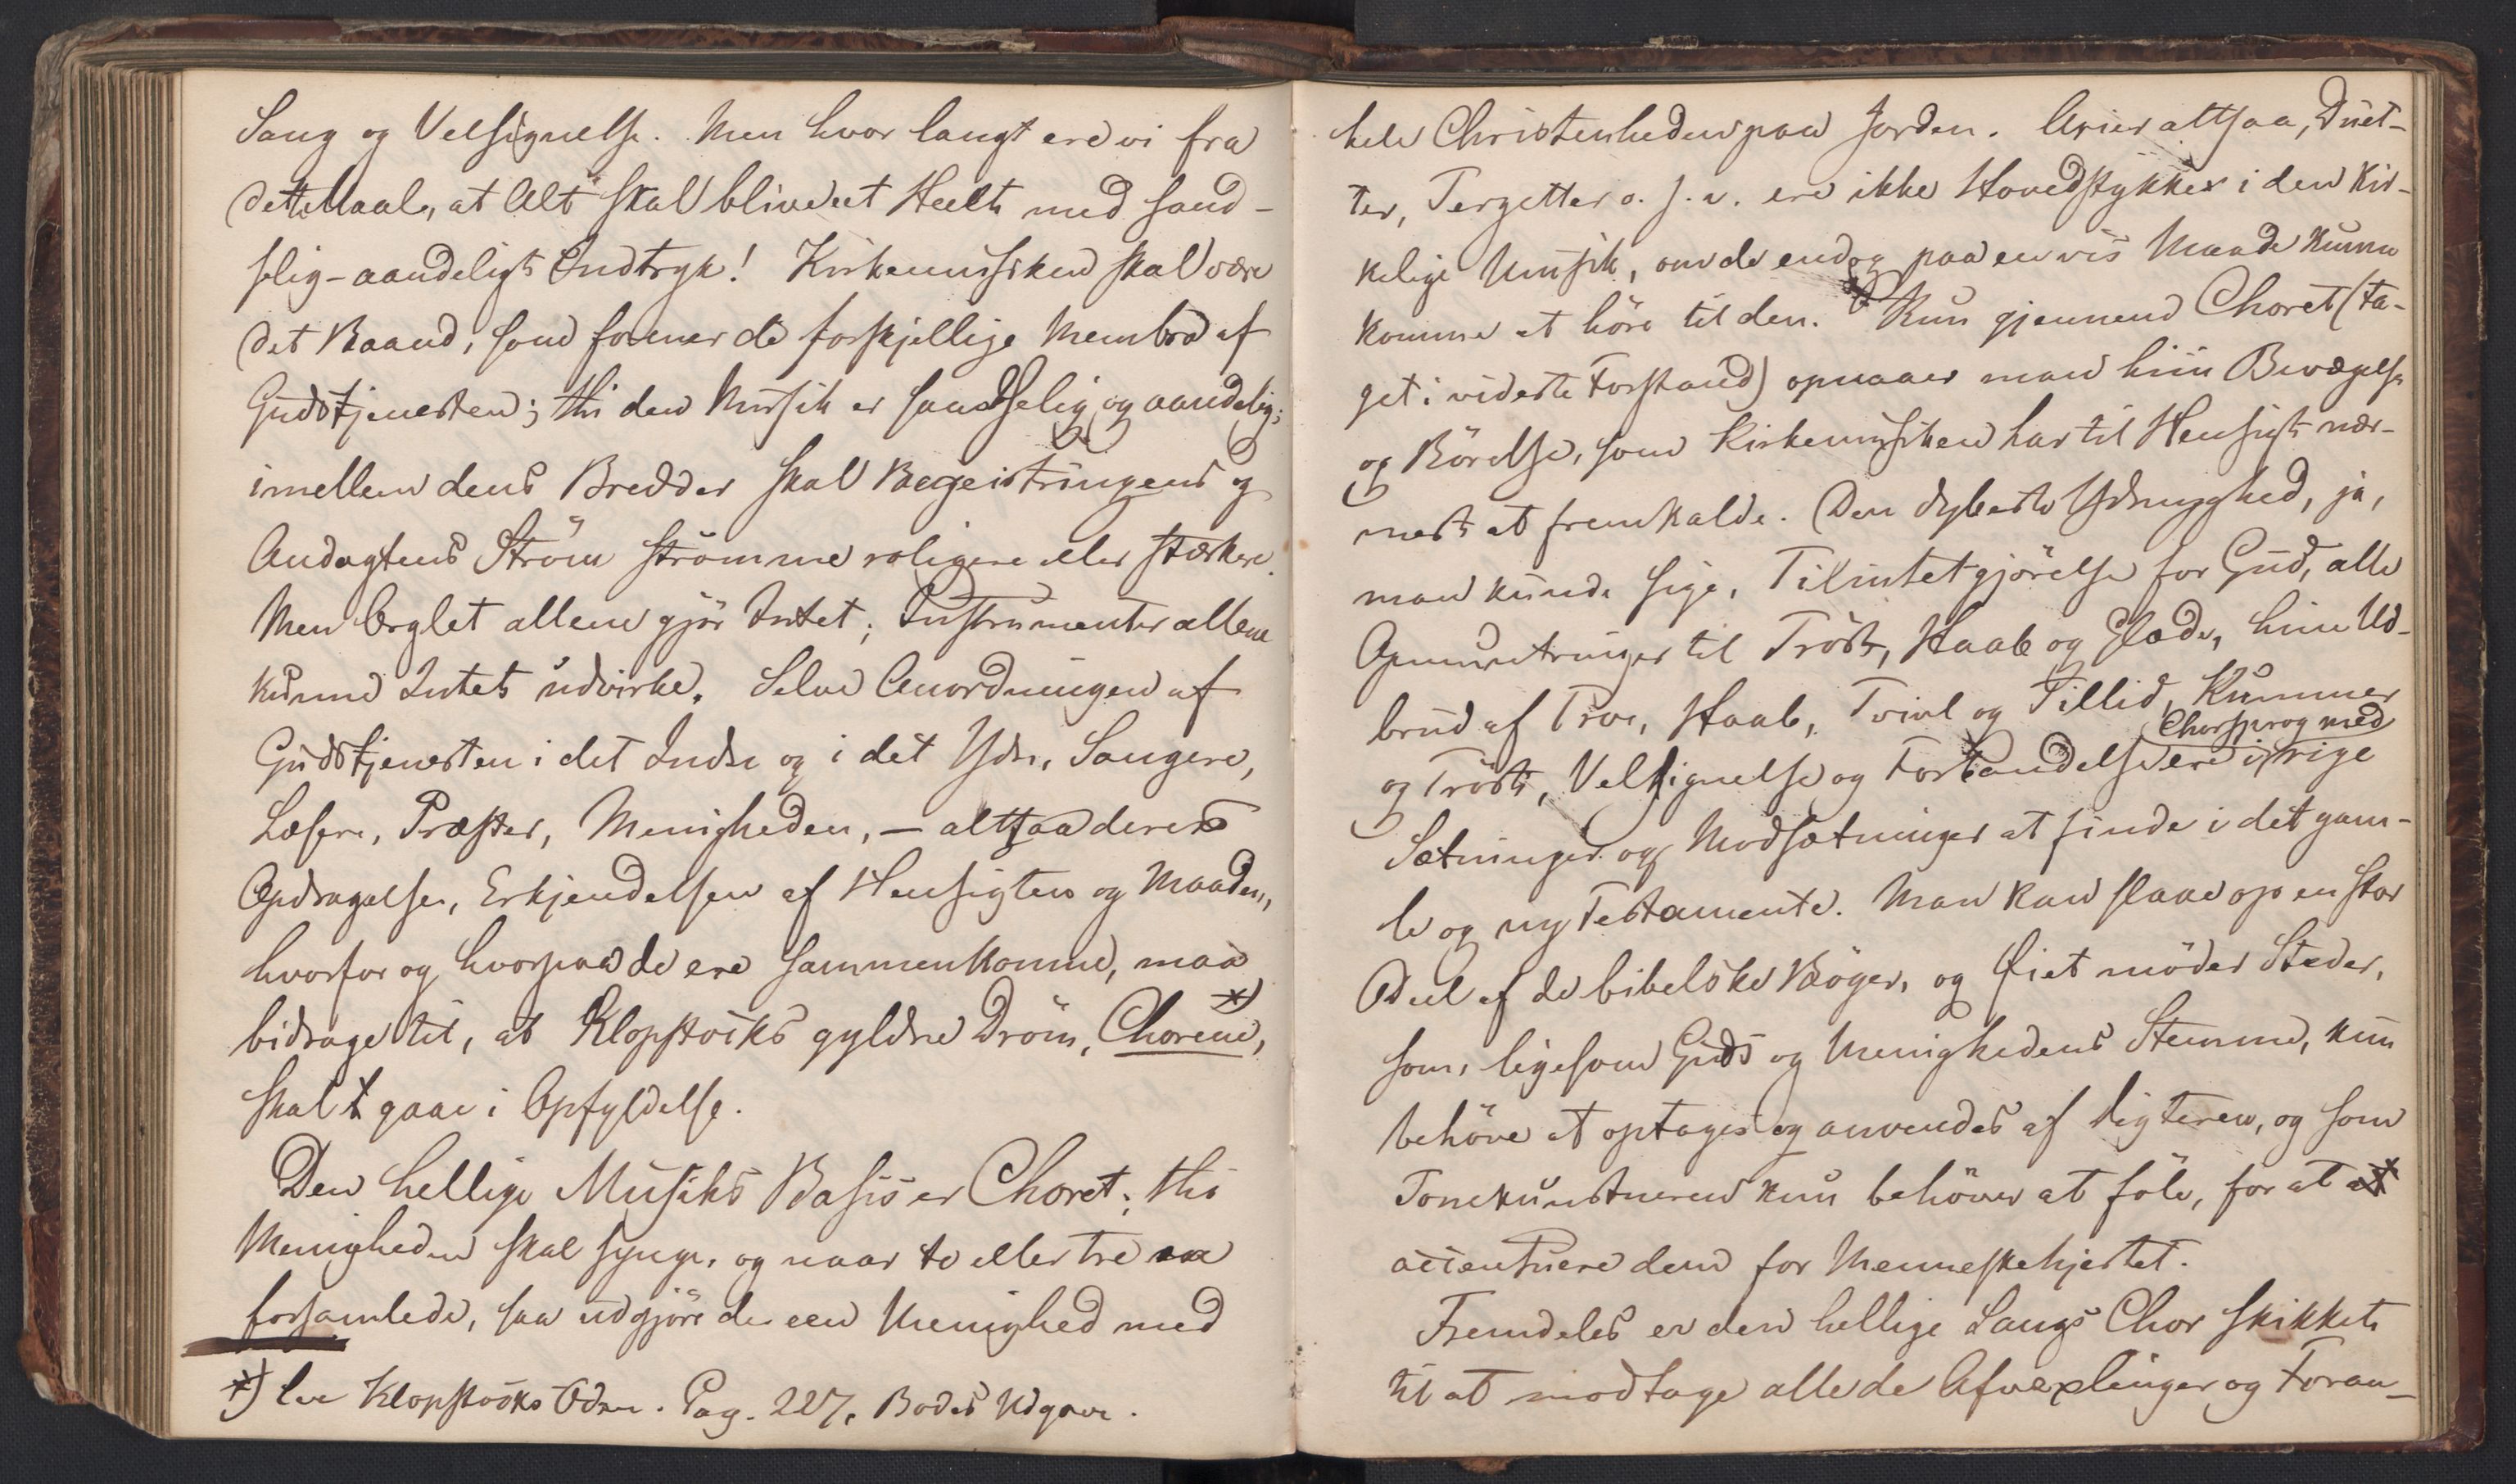 Sang og Velsignelse. Men hvor langt ere vi fra
dette Maal, at Alt skal blive eet Heelt med sand-
selig-aandeligt Indtryk! Kirkemusiken skal være
det Baand, som forener de forskjellige Membra af
Gudstjenesten; thi den Musik er sandselig og aandelig;
imellem dens Bredder skal Begeistringens og
Andagtens Ström strömme roligere eller stærkere.
Men Orglet allene gjör Intet; Instrumenter allene
kunne Intet udvirke. Selve Anordningen af
Gudstjenesten i det Indre og i det Ydre, Sangere,
Læsere, Præster, Menigheden, – altsaa deres
Opdragelse, Erkjendelsen af Hensigten og Maaden,
hvorfor og hvorpaa de ere sammenkomne, maa
bidrage til, at Klopstocks gyldne Dröm, Chorene, *)
skal gaae i Opfyldelse.
Den hellige Musiks Basis er Choret; thi
Menigheden skal synge, og naar to eller tre ere
forsamlede, saa udgjöre de een Menighed med
*) See Klopstocks Oder. Pag. 227, Bodes Udgave.
hele Christenheden paa Jorden. Arier altsaa, Duet-
ter, Terzetter o. s. v. ere ikke Hovedstykker i den Kir-
kelige Musik, om de endog paa en vis Maade kunne
komme at höre til den. Kun gjennem Choret (ta-
get i videste Forstand) opnaaer man hiin Bevægelse
og Rörelse, som Kirkemusiken har til Hensigt nær-
mest at fremkalde. Den dybeste Ydmyghed, ja,
man kunde sige, Tilintetgjörelse for Gud, alle
Opmuntringer til Tröst, Haab og Glæde, hine Ud-
brud af Troe, Haab, Tvivl og Tillid, Kummer
og Tröst, Velsignelse og Forbandelse ere i Chorsprog med rige
Sætninger og Modsætninger at finde i det gam-
le og ny Testamente. Man kan slaae op en stor
Deel af de bibelske Böger, og Öiet möder Steder,
som, ligesom Guds og Menighedens Stemme, kun
behöve at optages og anvendes af Digteren, og som
Tonekunstneren kun behöver at föle, for at
accentuere dem for Menneskehjertet.
Fremdeles er den hellige Sangs Chor skikket
til at modtage alle de Afvexlinger og Foran-